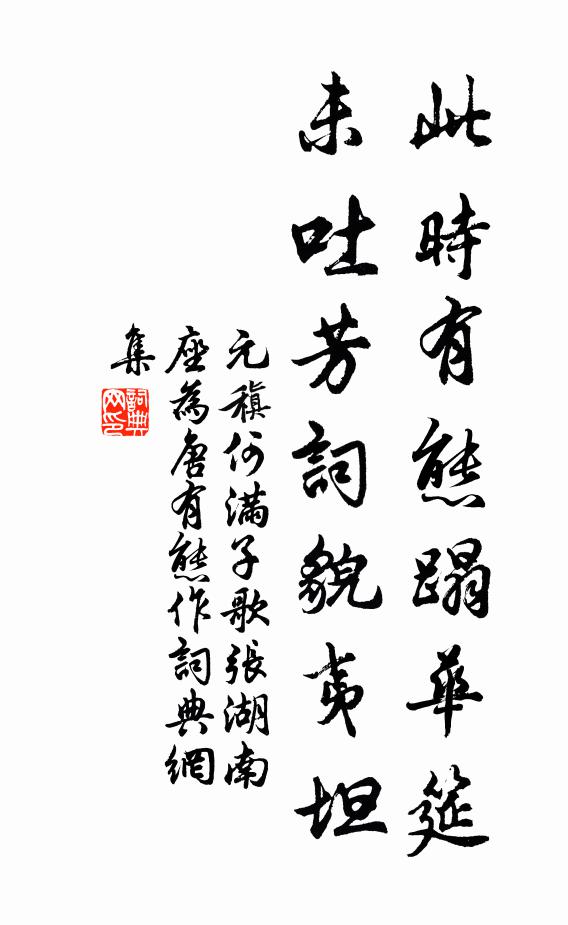 此時有態蹋華筵
未吐芳詞貌夷坦
元稹何滿子歌張湖南
座為唐有態作詞典網
集
詞典
网印